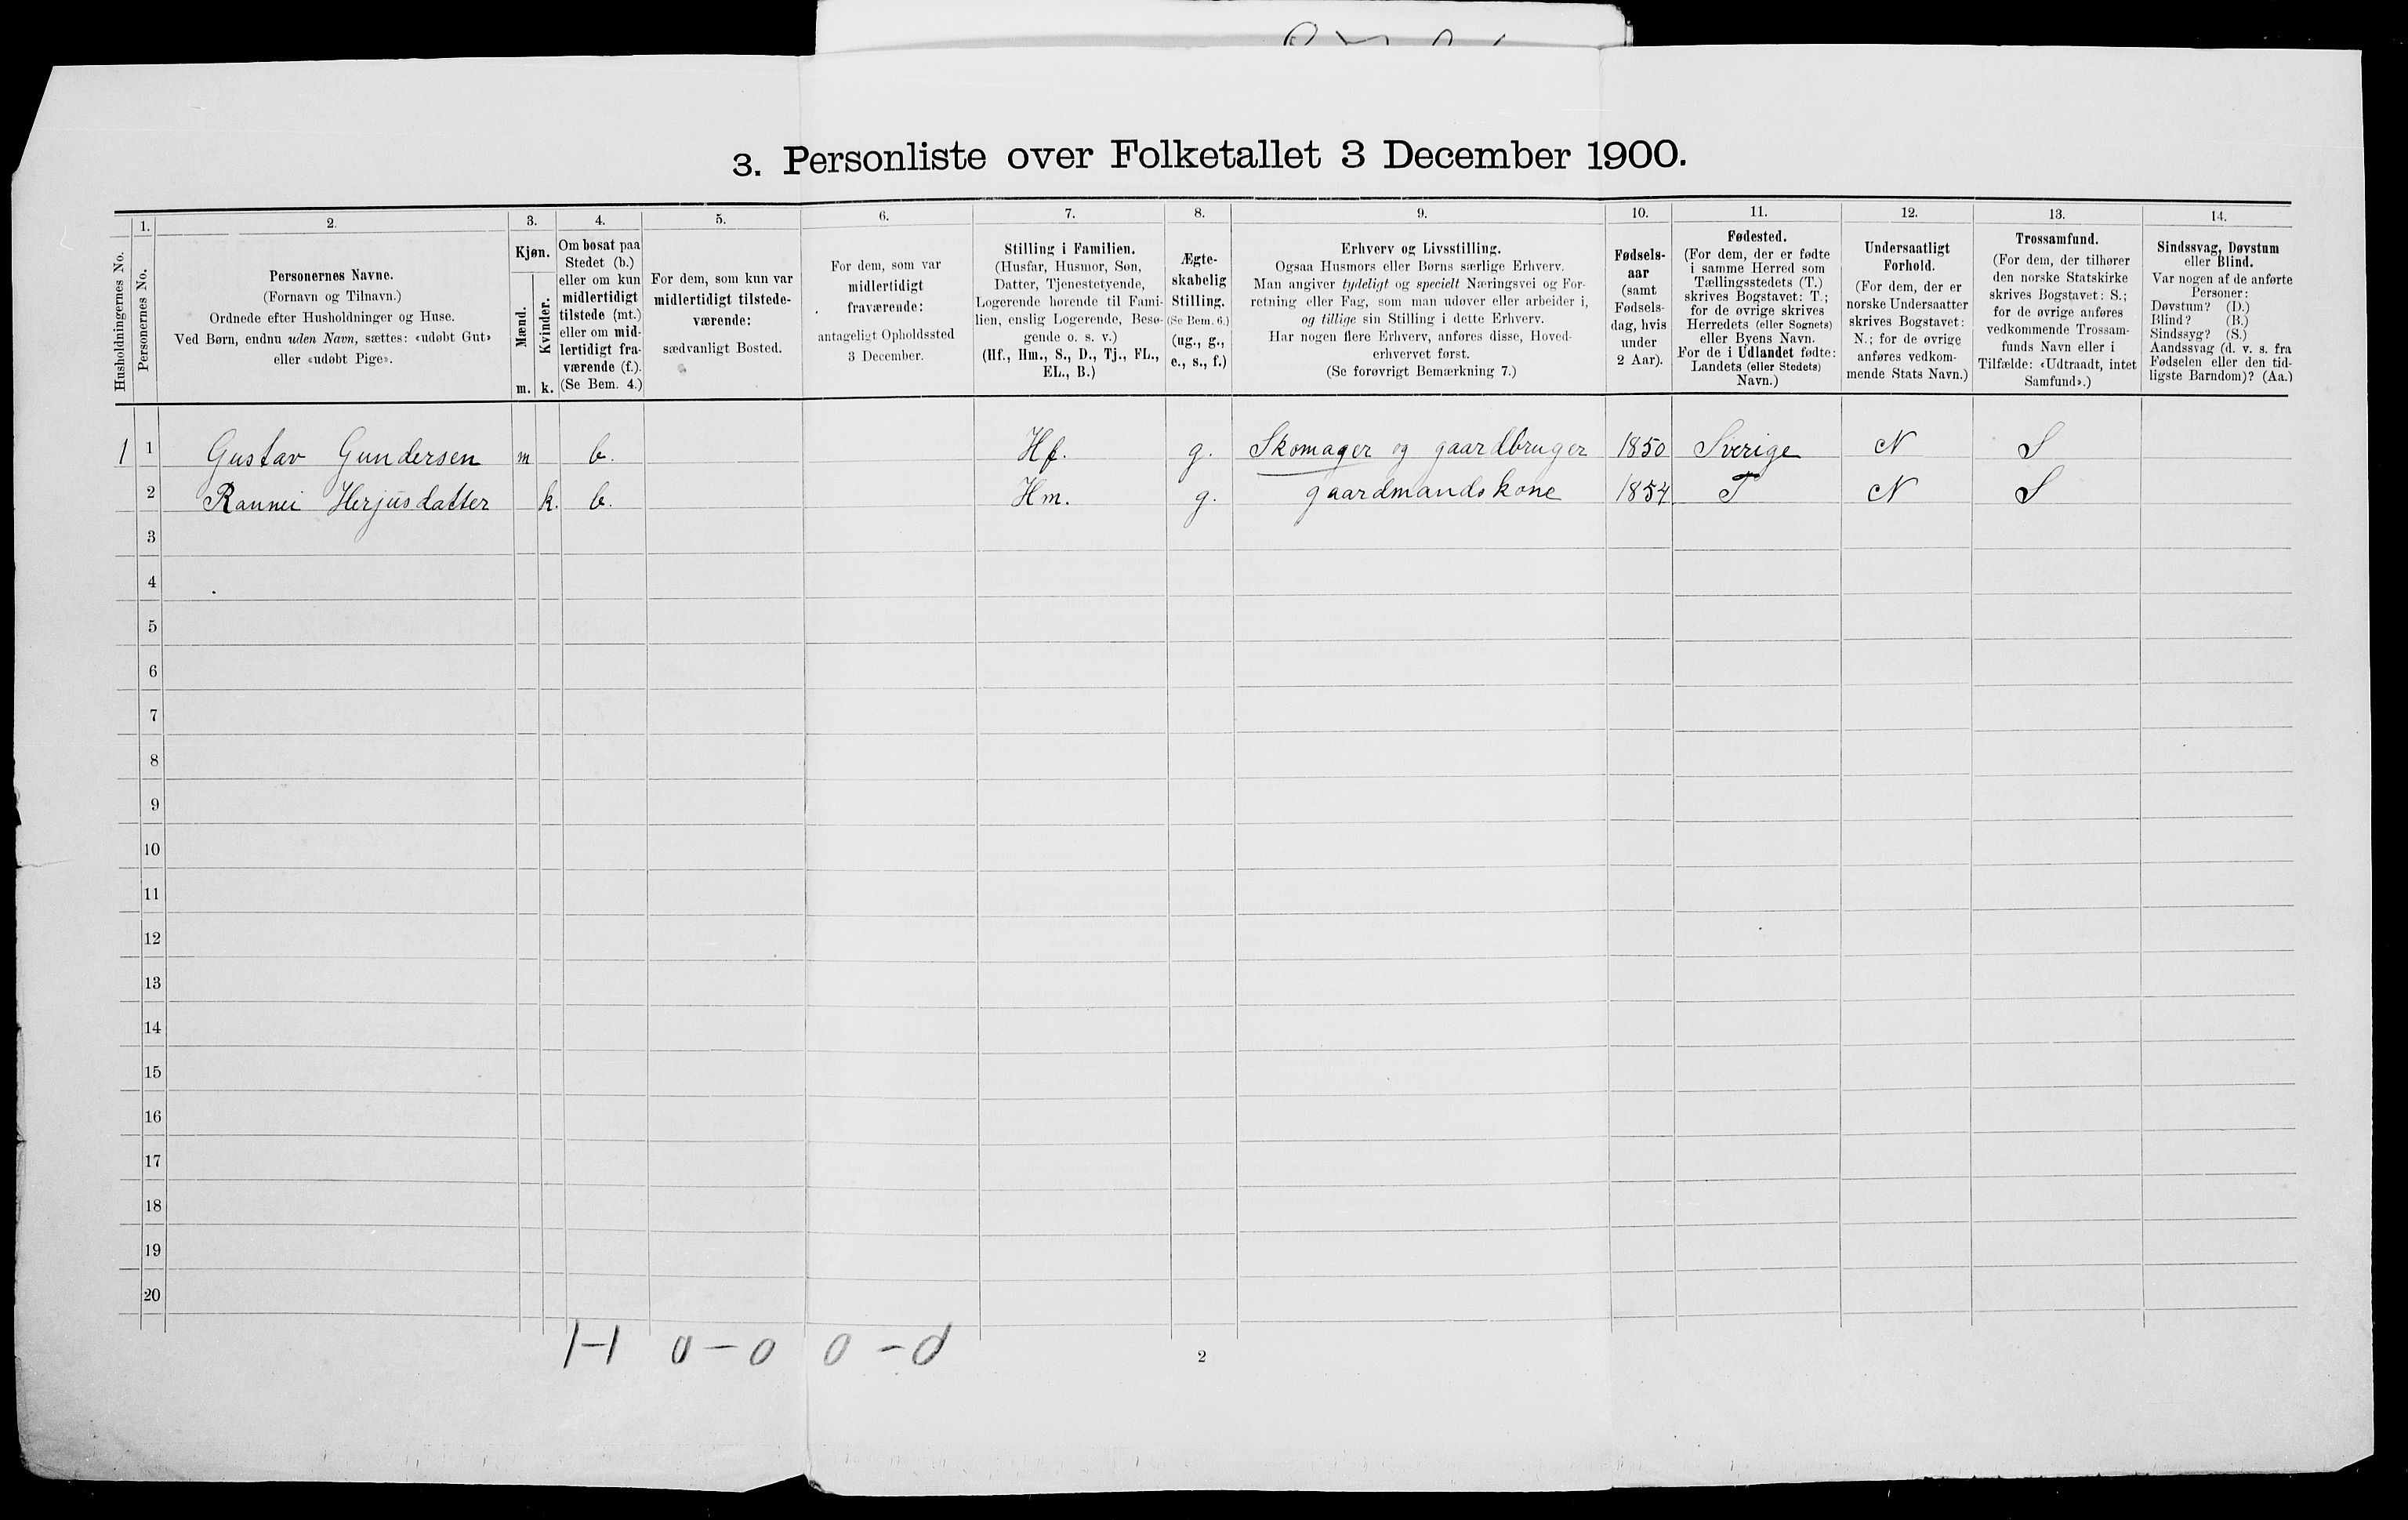 3. Personliste over Folketallet 3 December 1900.
1. 2. 3. 4. 5. 6. 7. 8. 9. 10. 11. 12. 13. 14.
Husholdningernes No.
Personernes No.
Personernes Navne.
(Fornavn og Tilnavn.)
Ordnede efter Husholdninger og Huse.
Ved Børn, endnu uden Navn, sættes: «udøbt Gut»
eller «udøbt Pige».
Kjøn.
Mænd.
Kvinder.
m. k.
Om bosat paa
Stedet (b.)
eller om kun
midlertidigt
tilstede (mt.)
eller om mid-
lertidigt fra-
værende (f.).
(Se Bem. 4.)
For dem, som kun var
midlertidigt tilstede-
værende:
sædvanligt Bosted.
For dem, som var
midlertidigt
fraværende:
antageligt Opholdssted
3 December.
Stilling i Familien.
(Husfar, Husmor, Søn,
Datter, Tjenestetyende,
Logerende hørende til Fami-
lien, enslig Logerende, Besø-
gende o. s. v.)
(Hf., Hm., S., D., Tj., FL.,
EL., B.)
Ægte-
skabelig
Stilling.
(Se Bem. 6.)
(ug., g.,
e., s., f.)
Erhverv og Livsstilling.
Ogsaa Husmors eller Børns særlige Erhverv.
Man angiver tydeligt og specielt Næringsvei og For-
retning eller Fag, som man udøver eller arbeider i,
og tillige sin Stilling i dette Erhverv.
Har nogen flere Erhverv, anføres disse, Hoved-
erhvervet først.
(Se forøvrigt Bemærkning 7.)
Fødsels-
aar
(samt
Fødsels-
dag, hvis
under
2 Aar).
Fødested.
(For dem, der er fødte
i samme Herred som
Tællingsstedets (T.)
skrives Bogstavet: T.;
for de øvrige skrives
Herredets (eller Sognets)
eller Byens Navn.
For de i Udlandet fødte:
Landets (eller Stedets)
Navn.)
Undersaatligt
Forhold.
(For dem, der er
norske Undersaatter
skrives Bogstavet:
N.; for de øvrige
anføres vedkom-
mende Stats Navn.)
Trossamfund.
(For dem, der tilhører
den norske Statskirke
skrives Bogstavet: S.;
for de øvrige anføres
vedkommende Trossam-
funds Navn eller i
Tilfælde: «Udtraadt, intet
Samfund».)
Sindssvag, Døvstum
eller Blind.
Var nogen af de anførte
Personer:
Døvstum? (D.)
Blind? (B.)
Sindssyg? (S.)
Aandssvag (d. v. s. fra
Fødselen eller den tid-
ligste Barndom)? (Aa.)
1 1 Gustav Gundersen m b. Hf. g. Skomager og gaardbruger 1850 Sverige N S
2 Rannei Herjusdatter k. b. Hm. g. gaardmandskone 1854 T N S
3
4
5
6
7
8
9
10
11
12
13
14
15
16
17
18
19
20
1-1 0-0 0-0
2